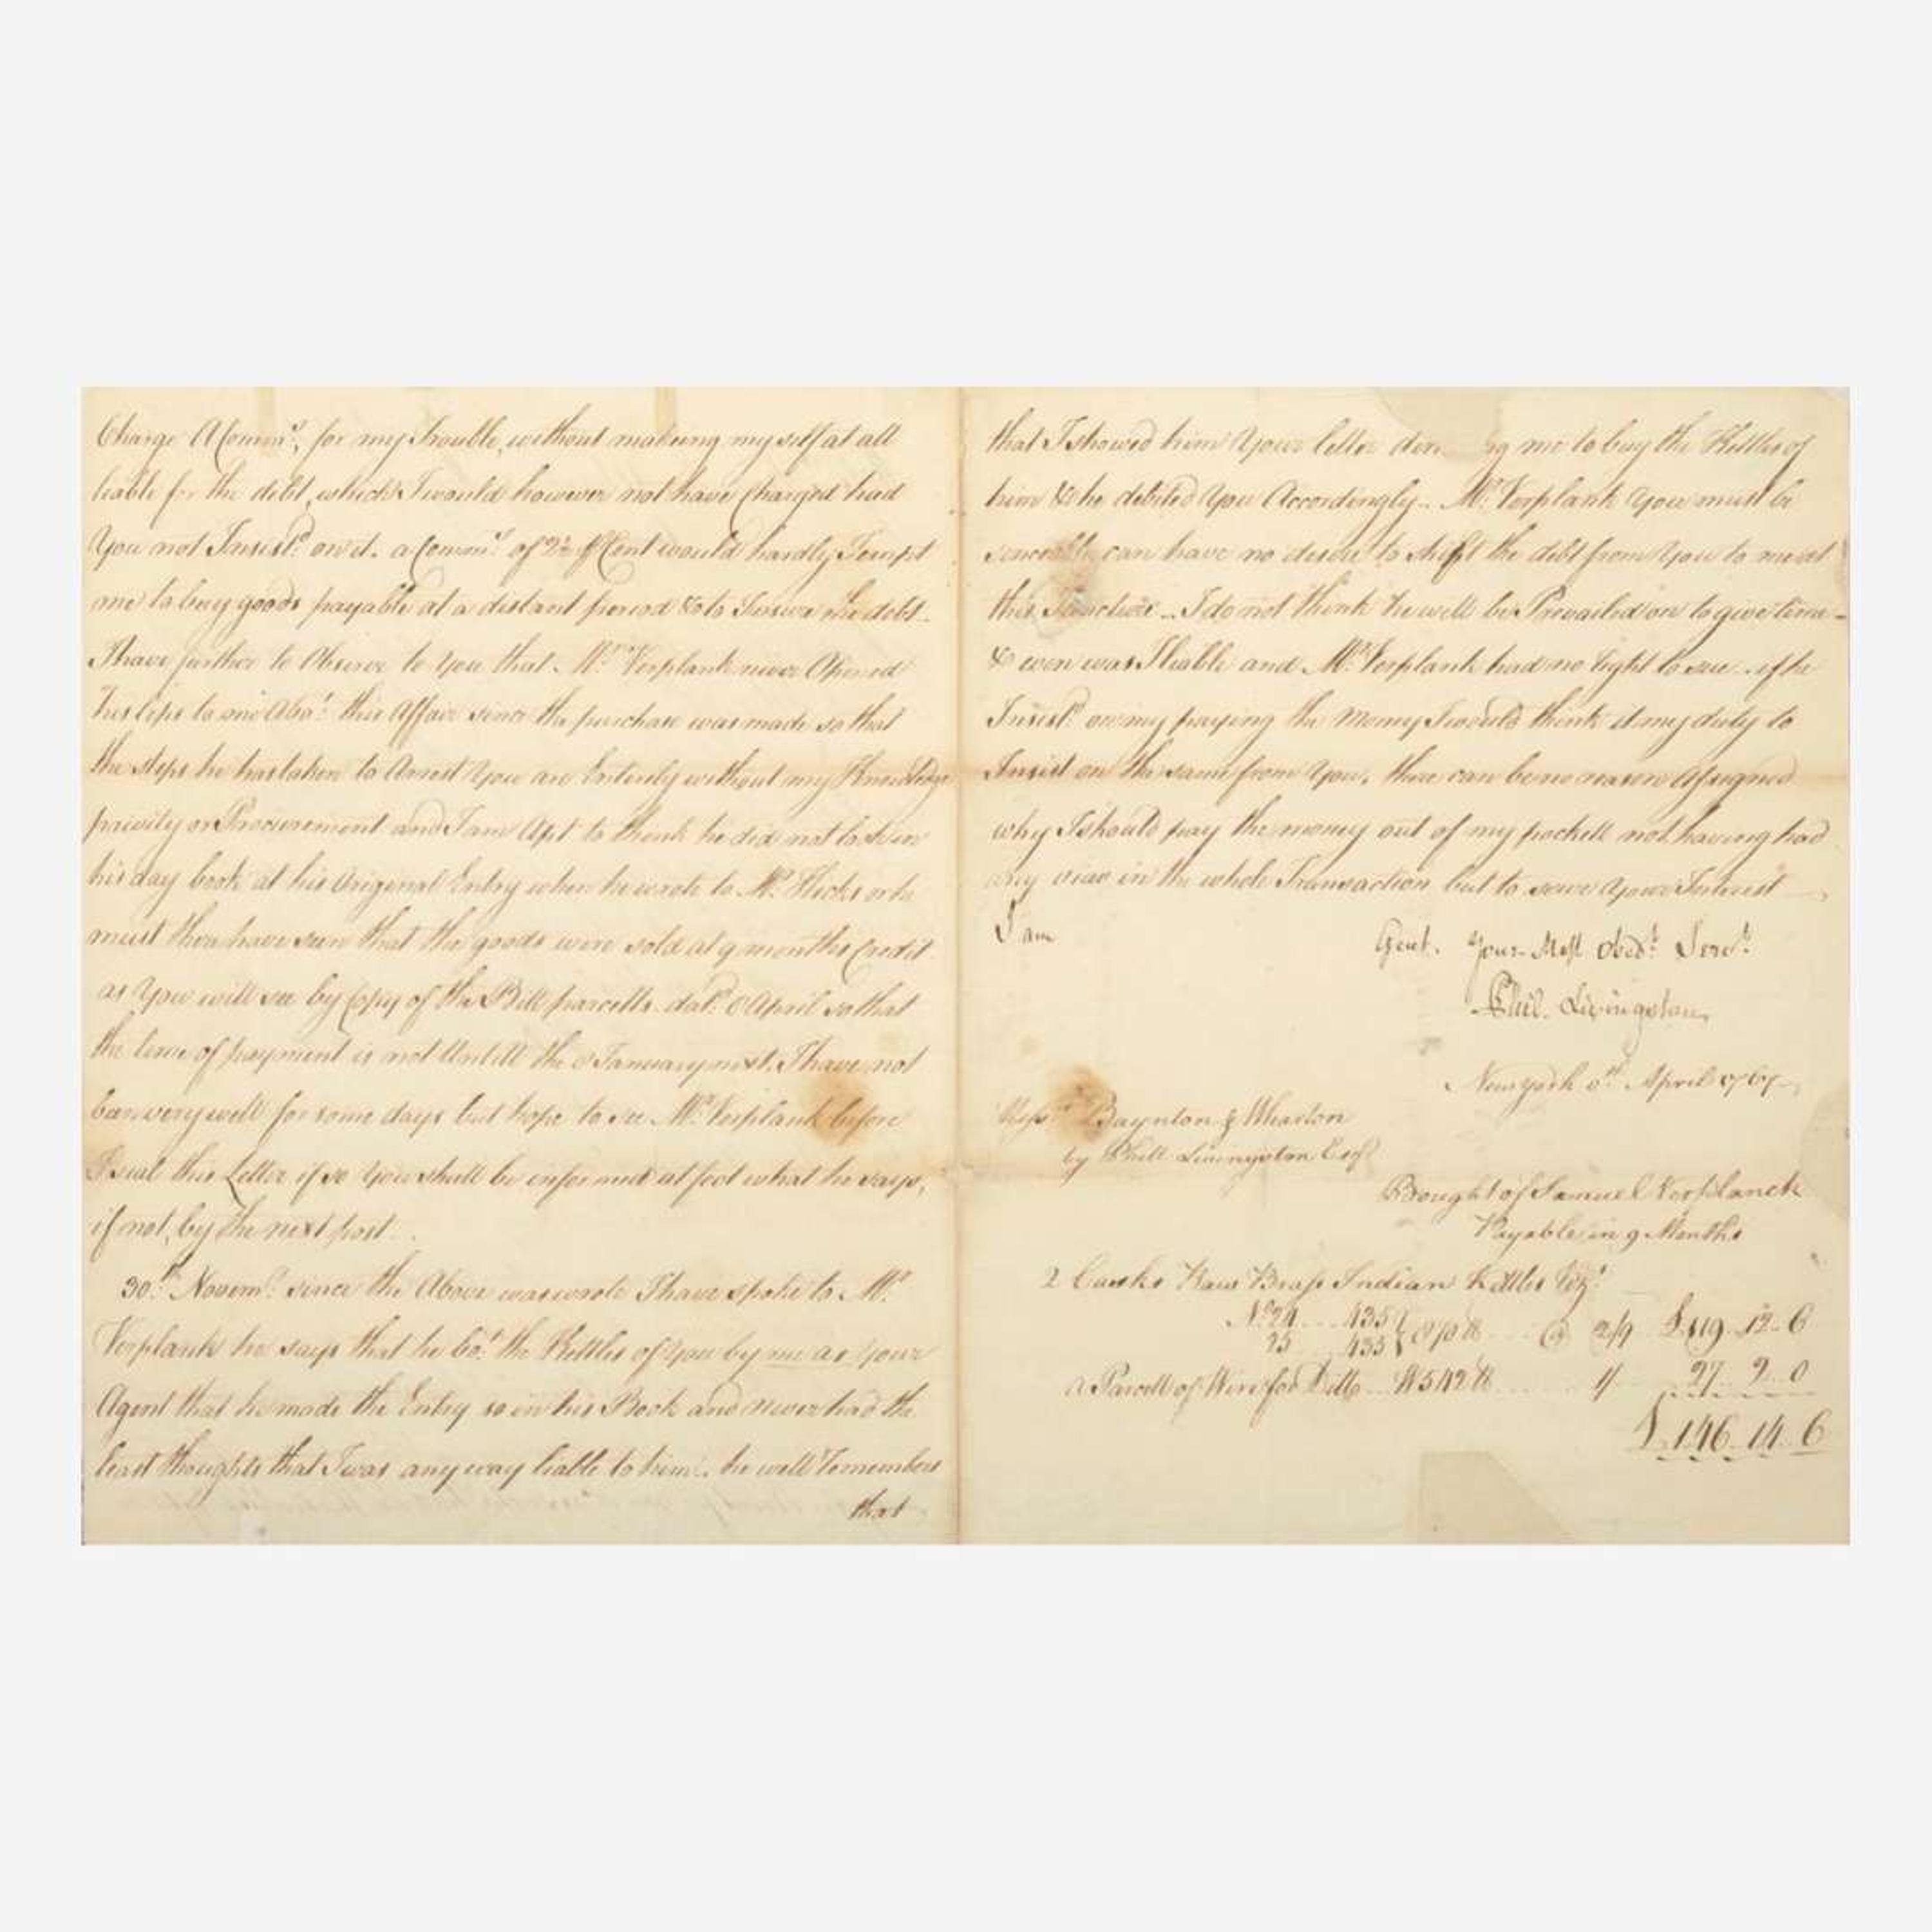 Charge A Commn. for my Trouble, without making my self at all
leable for the debt, which I would however not have Charged had
You not Insistd. on it. a Commn. of 2½ ⅌ Cent would hardly Tempt
me to buy goods payable at a distant period & to Insure the debt.
I have further to Observe to You that Mr. Verplank never Opened
his lips to me Abot. this Affair since the purchase was made so that
the steps he has taken to Arrest You are Entirely without my Knowledge
privity or Procurement and I am Apt to think he did not look in
his day book at his Original Entry when he wrote to Mr. Hicks or he
must then have seen that the goods were sold at 9 months Credit
as You will see by Copy of the Bill parcells dat. 8 April so that
the time of payment is not Untill the 8 January next. I have not
been very well for some days but hope to see Mr. Verplank before
I seal this Letter if so You shall be informed at foot what he says,
if not, by the next post.
30th. Novemr. since the Above was wrote I have spoke to Mr.
Verplank he says that he the Kettles of You by me as Your
Agent that he made the Entry so in his Book and never had the
least thoughts that I was any way liable to him. he well remembers
that
that I showed him Your letter me to buy the Kettles of
him & he debited You Accordingly.. Mr. Verplank You must be
can have no desire to shift the debt from You to me at
this .. I do not think he will be Prevailed on to give time
& even was I liable and Mr. Verplank had no right to sue . if he
Insistd. on my paying the Money I would think it my duty to
Insist on the same from You. there can be no reason assigned
why I should pay the money out of my pockett not having had
any view in the whole Transaction but to serve Your Interest
I am
Gent. Your Most Obedt. Servt.
Phil. Livingston
New York 8th April 1767
Messrs. Baynton & Wharton
by Phill Livingston Esqr
Brought of Samuel Verplanck
Payable in 9 Months
2 Casks Brass Indian Kettles Vizt.
No. 24 .... 435
25 .... 435 } 870 lb .... @ 2/9 £119..12..6
a Parcell of Wire for Ditto .. 542 lb .... 1/ 27..2..0
£146..14..6